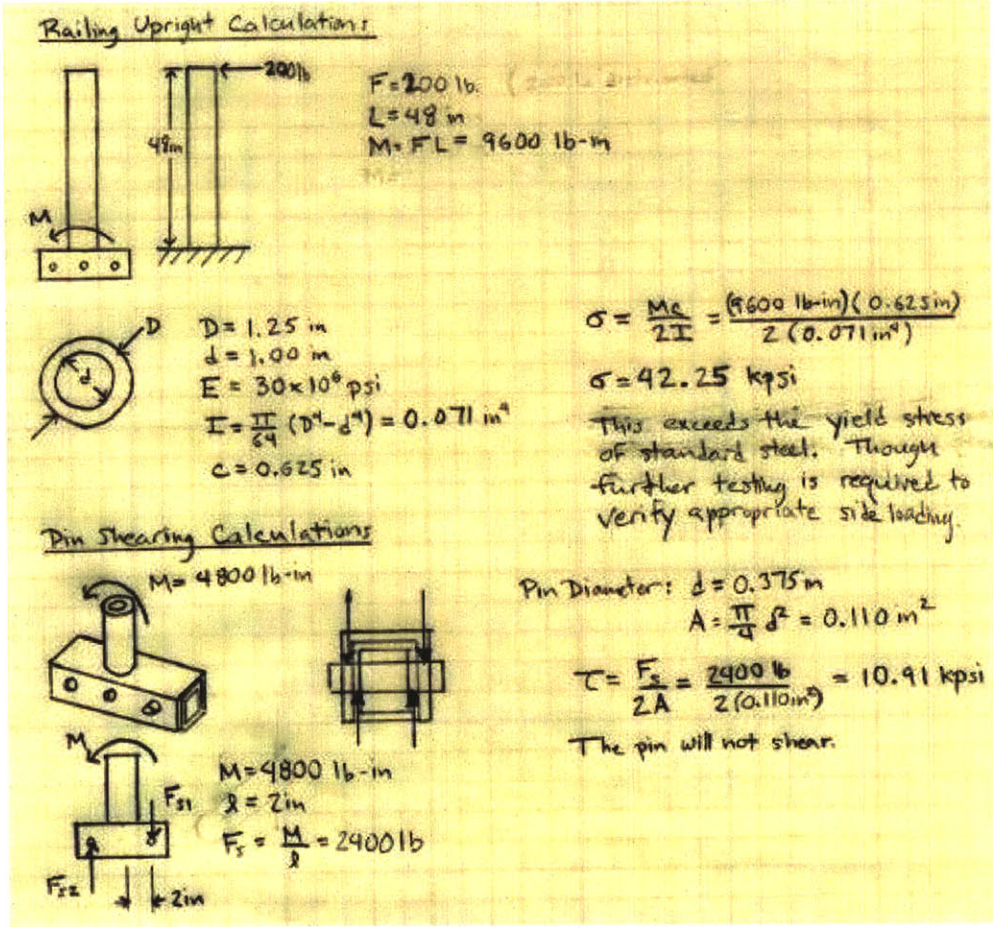 Railing Upright Calculations
200 lb
48in
M
F=200 lb.
L=48 in
M=FL= 9600 lb-in
M=
D
d
D= 1.25 in
d= 1.00 in
E = 30×10⁶ psi
I= π/64 (D⁴-d⁴) = 0.071 in⁴
c=0.625 in
σ = Mc/2I = (9600 lb-in)(0.625in)/2(0.071in⁴)
σ=42.25 kpsi
This exceeds the yield stress
of standard steel. Though
further testing is required to
verify appropriate side loading.
Pin Shearing Calculations
M= 4800 lb-in
M
Fs1
Fs2
2in
M=4800 lb-in
l = 2in
Fs = M/l = 2400 lb
Pin Diameter: d = 0.375in
A = π/4 d² = 0.110 in²
τ= Fs/2A = 2400 lb/2(0.110in²) = 10.91 kpsi
The pin will not shear.